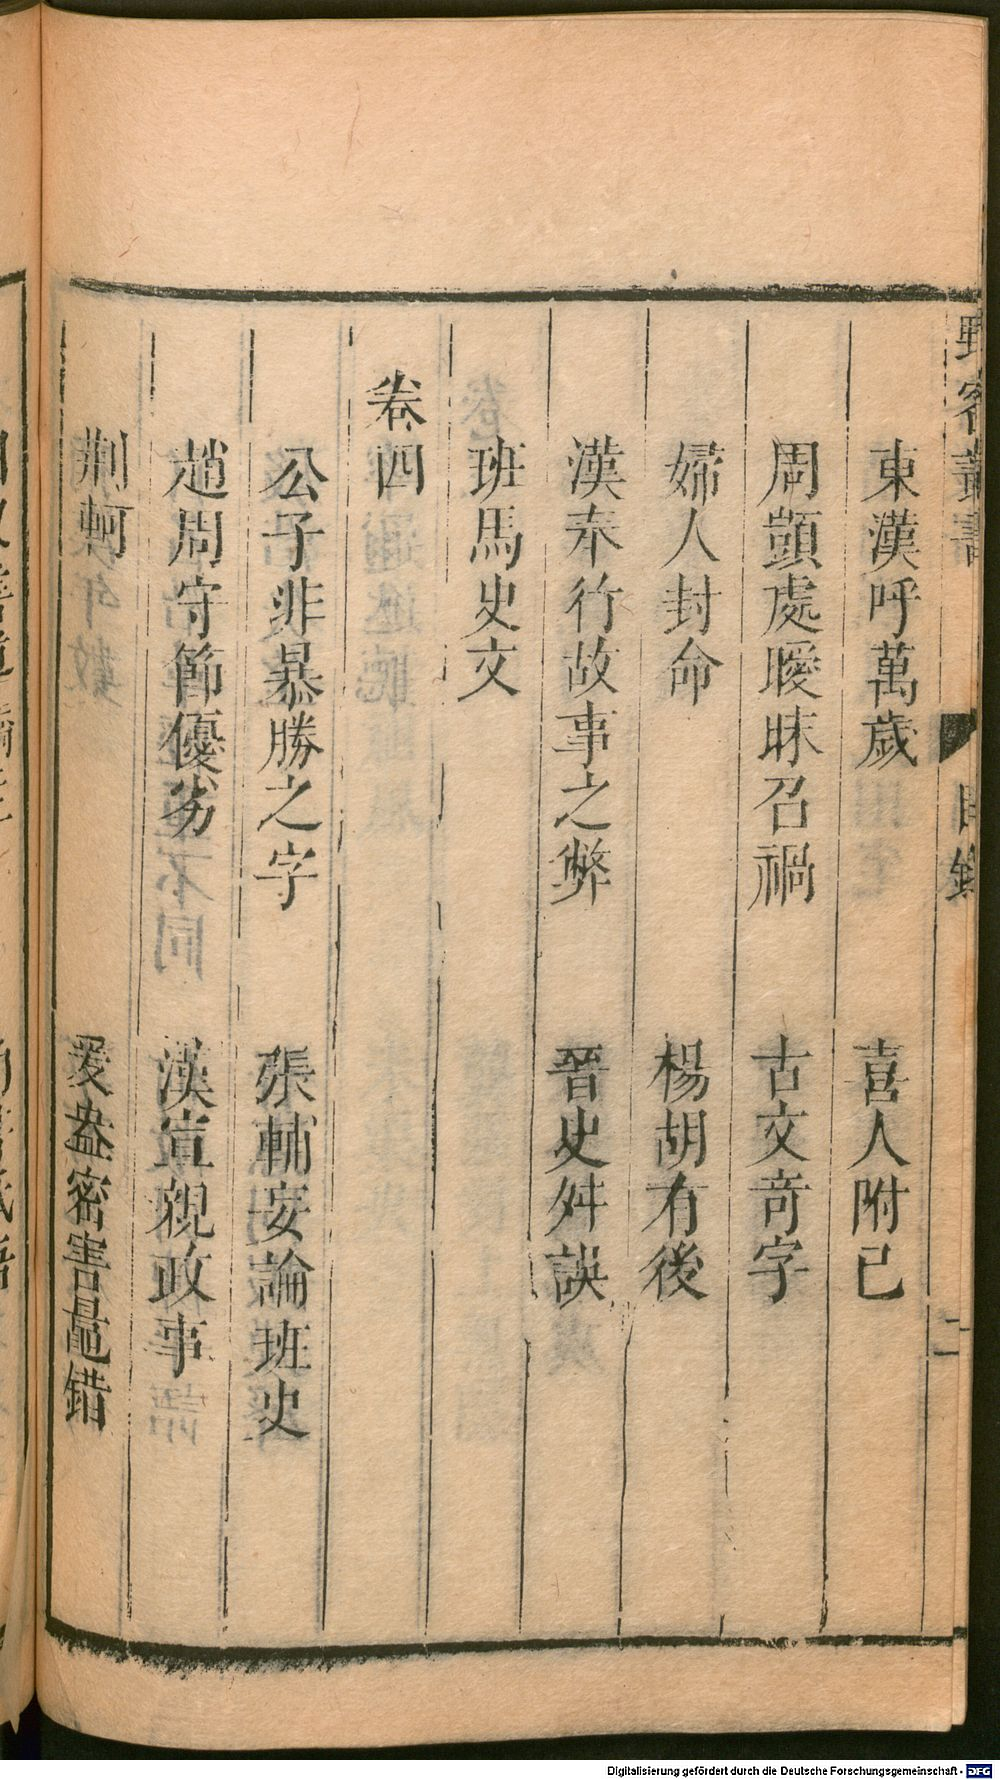 野客叢書 目錄 二
東漢呼萬歲 喜人附己
周顗處曖昧召禍 古文奇字
婦人封命 楊胡有後
漢奉行故事之弊 晉史舛誤
班馬史文
卷四
公子非暴勝之字 張輔妄論班史
趙周守節優劣 漢宣親政事
荆軻 爰盎密害鼂錯
Digitalisierung gefördert durch die Deutsche Forschungsgemeinschaft - DFG